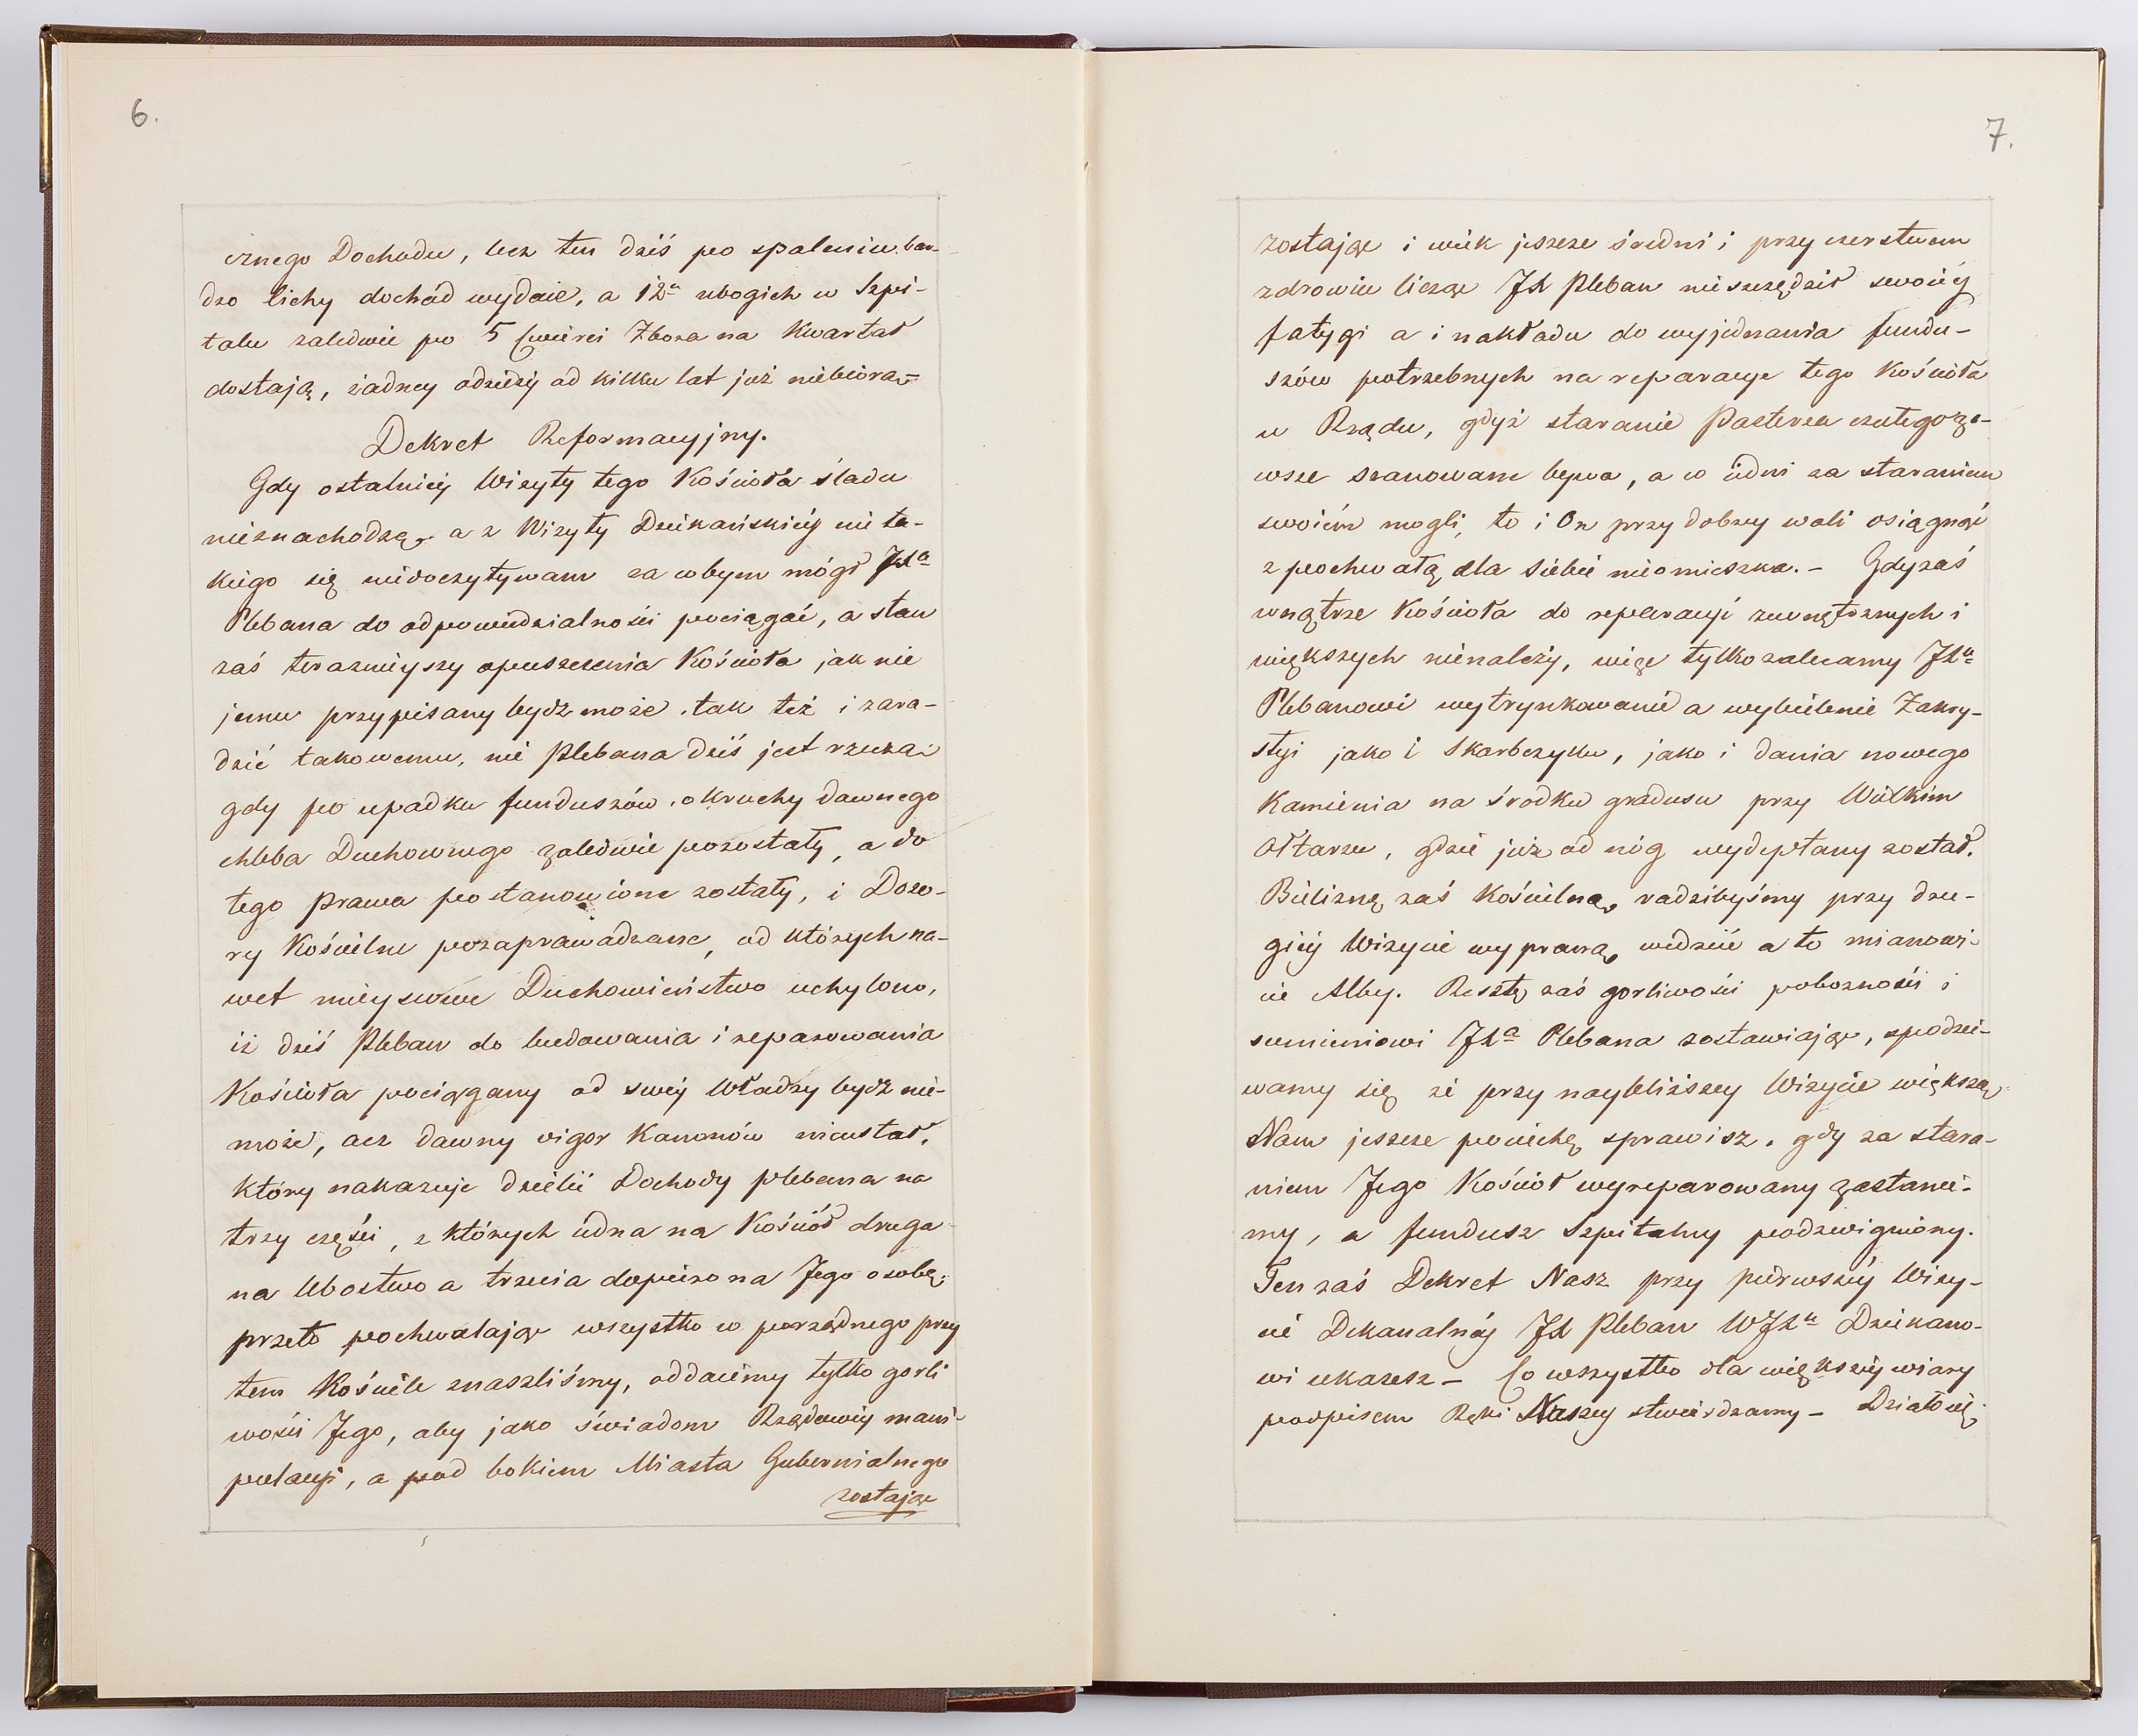 6.
cznego Dochodu, lecz ten dziś po spaleniu bar-
dzo lichy dochód wydaie, a 12u ubogich w Szpi-
talu zaledwie po 5 Cwierci Zboza na Kwartał
dostają, żadney odzieży od kilku lat już niebiorą.-
Dekret Reformacyjny.
Gdy ostatniéy Wizyty tego Kościoła śladu
nieznachodzą, a z Wizyty Dziekańskiéy nic ta-
kiego się niedoczytywam za cobym mógł JXa
Plebana do odpowiedzialności pociągać, a stan
zaś teraznieyszy opuszczenia Kościoła jak nie
jemu przypisany bydz może, tak też i zara-
dzić takowemu, nie Plebana dziś jest rzeczą
gdy po upadku funduszów, okruchy dawnego
chleba Duchownego zaledwie pozostały, a do
tego prawa postanowione zostały, i Dozo-
ry Kościelne pozaprawadzane, od których na-
wet mieyscowe Duchowieństwo uchylono,
iż dziś Pleban do budowania i reparowania
Kościoła pociągany od swéy Władzy bydz nie-
może, acz dawny vigor Kanonów nieustał,
który nakazuje dzielić Dochody plebana na
trzy części, z których iedna na Kościół druga
na Ubostwo a trzecia dopiero na Jego osobę,
przeto pochwalając wszystko co porządnego przy
tem Kościele znaszliśmy, oddaiemy tylko gorli
wości Jego, aby jako świadom Rządowéy mani-
pulacyi, a pod bokiem Miasta Gubernialnego
zostając
7.
zostając i wiek jeszcze średni i przy czerstwem
zdrowiu licząc JX Pleban nieszczędził swoiéy
fatygi a i nakładu do wyjednania fundu-
szów potrzebnych na reparacye tego Kościoła
u Rządu, gdyż staranie Pasterza czułego za-
wsze szanowane bywa, a co iedni za staraniem
swoiém mogli, to i On przy dobrey woli osiągnąć
z pochwałą dla siebie nieomieszka.- Gdyzaś
wnątrze Kościoła do reparacyi zewnętrznych i
większych nienależy, więc tylko zalecamy JXu
Plebanowi wytrynkowanie a wybielenie Zakry-
styi jako i Skarbczyku, jako i dania nowego
Kamienia na środku gradusu przy Wielkim
Ołtarzu, gdzie już od nóg wydeptany został.
Bieliznę zaś Kościelną, radzibyśmy przy dru-
giéy Wizycie wypraną, widzieć a to mianowi-
cie Alby. Resztę zaś gorliwości pobozności i
sumieniowi JXa Plebana zostawiając, spodzie-
wamy się że przy naybliższey Wizycie większą
Nam jeszcze pociechę sprawisz, gdy za stara-
niem Jego Kościoł wyreparowany zastanie-
my, a fundusz Szpitalny podzwigniony.
Ten zaś Dekret Nasz przy pierwszéy Wizy-
cie Dekanalnéy JX Pleban WJXu Dziekano-
wi ukazesz - Co wszystko dla większéy wiary
podpisem Ręki Naszey stwierdzamy - Działo się